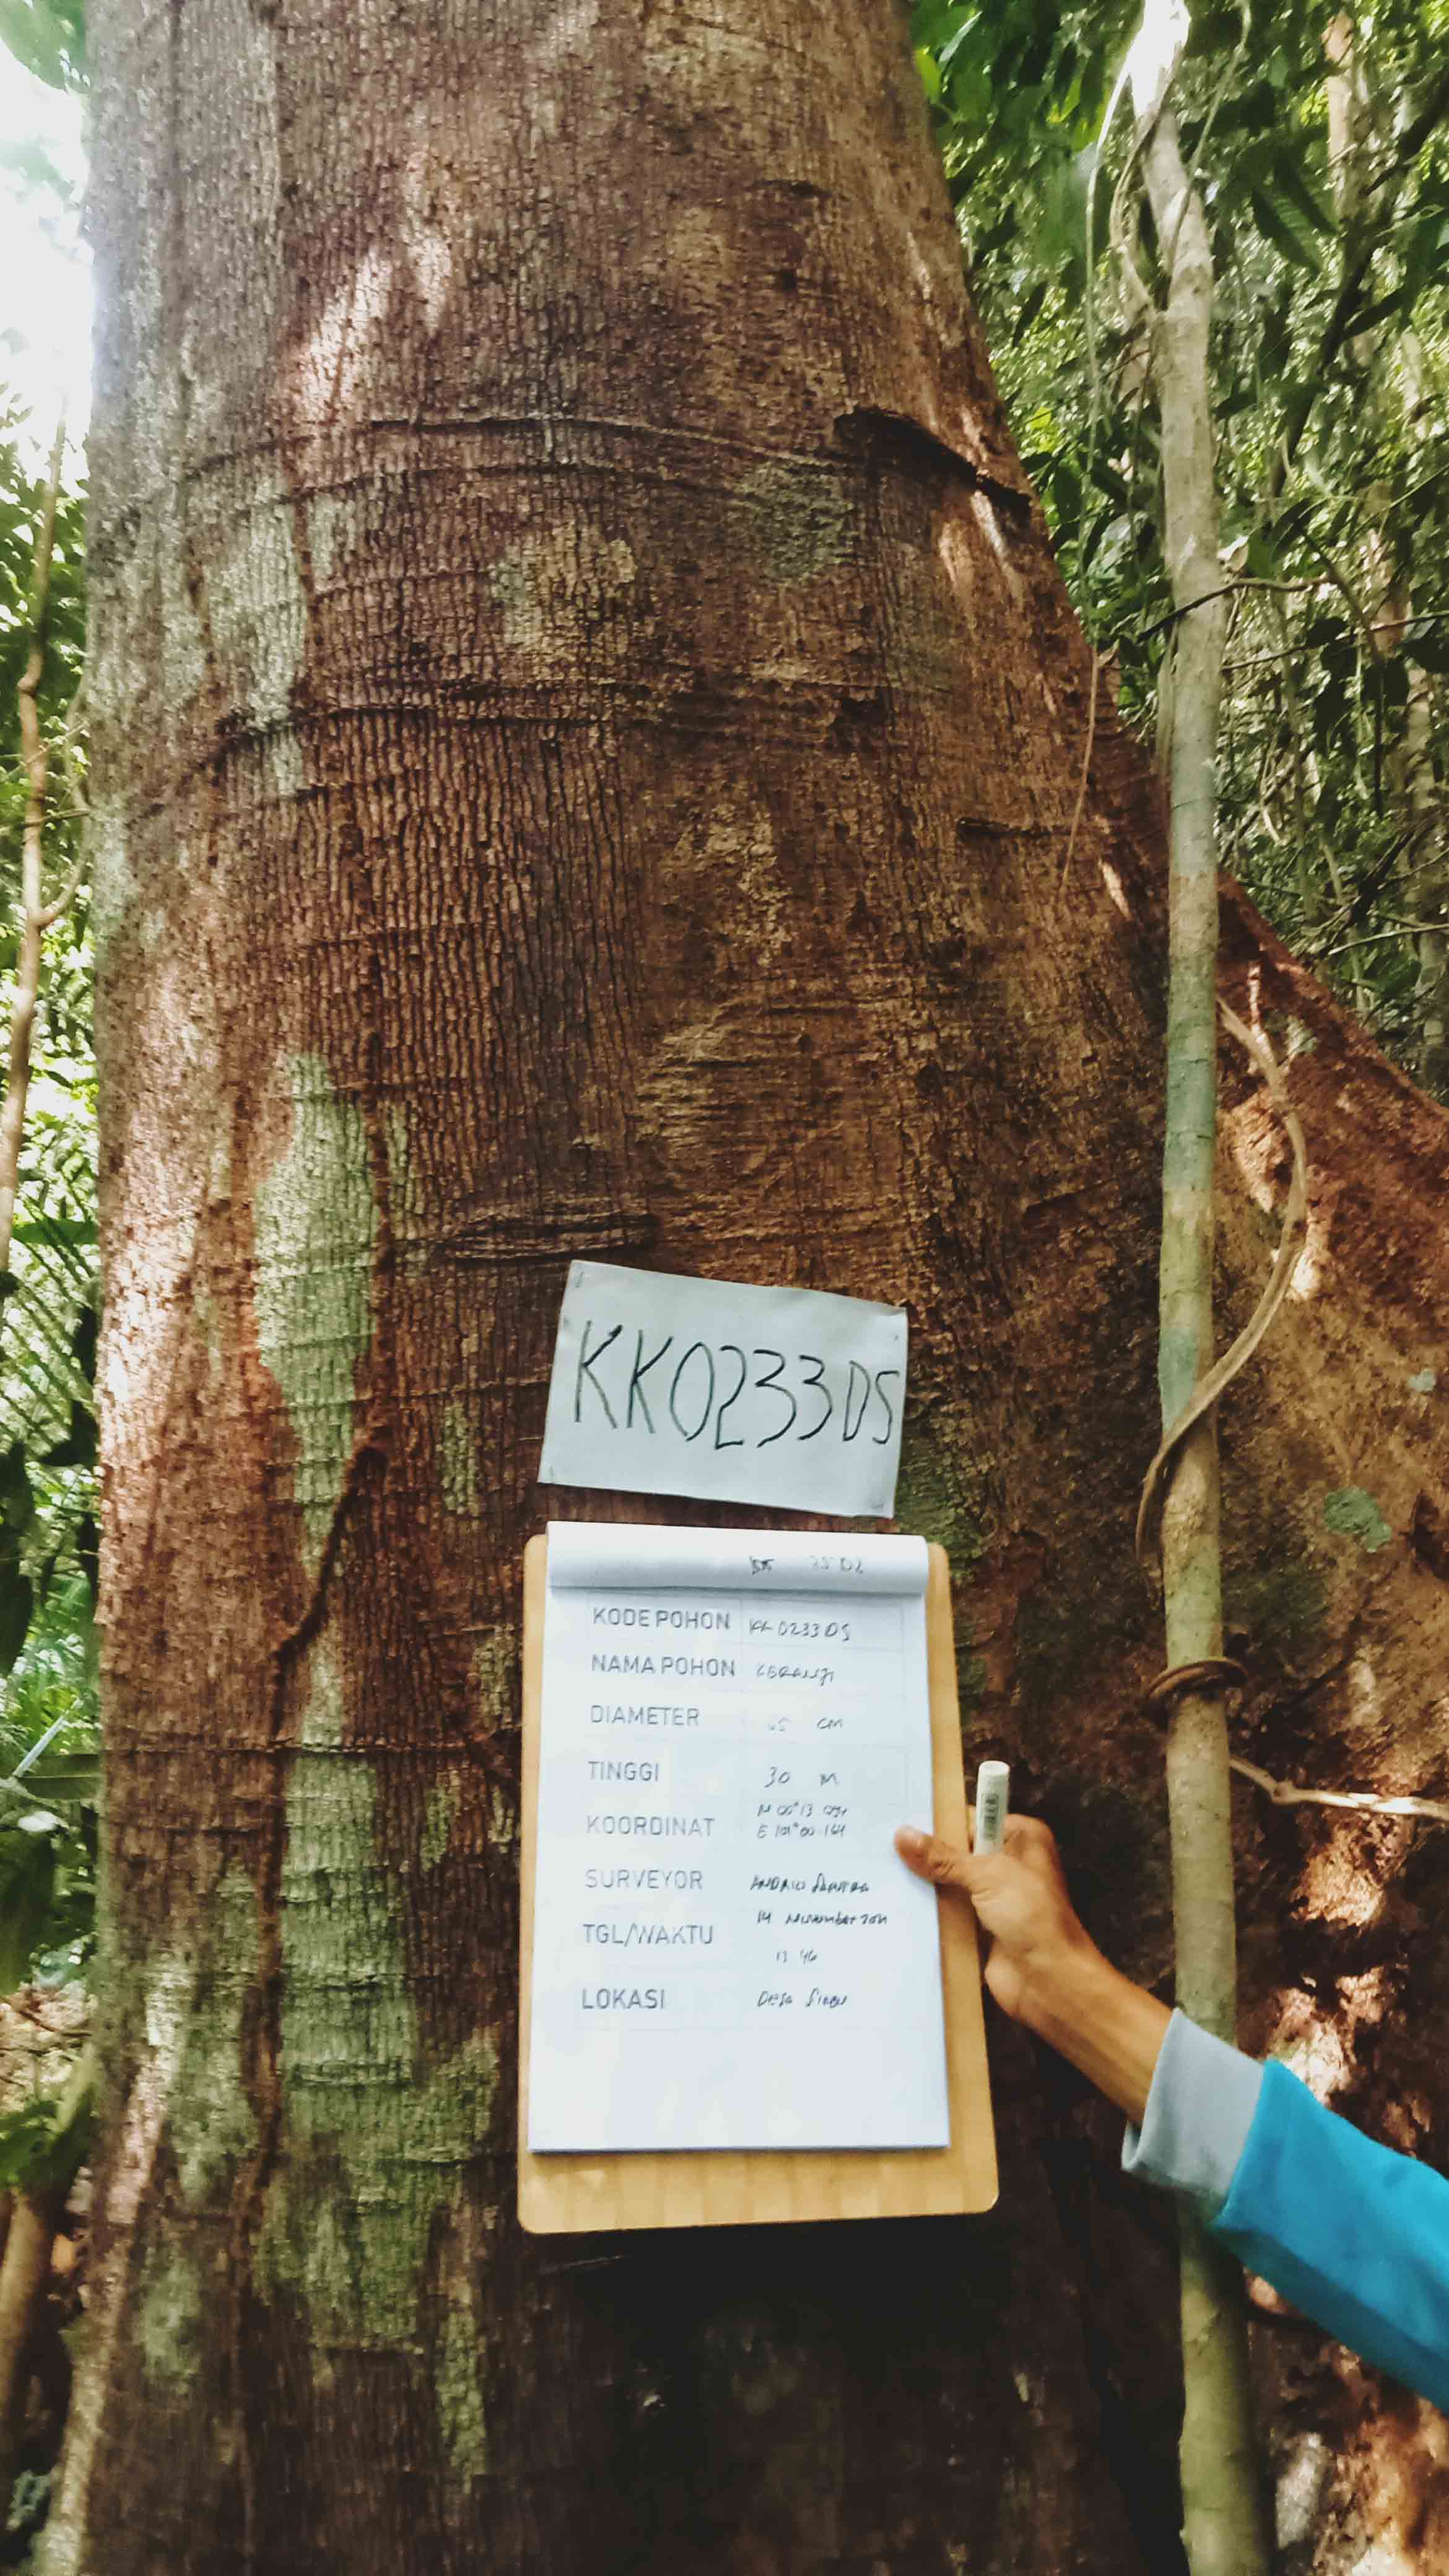 KK0233DS
KODE POHON KK 0233 DS
NAMA POHON KERANJI
DIAMETER 65 cm
TINGGI 30 m
KOORDINAT N 00°13
E 101°00 164
SURVEYOR
TGL/WAKTU 14 November
13 46
LOKASI Desa